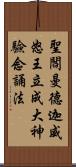 聖閻曼德迦威
怒王立成大神
驗念誦法